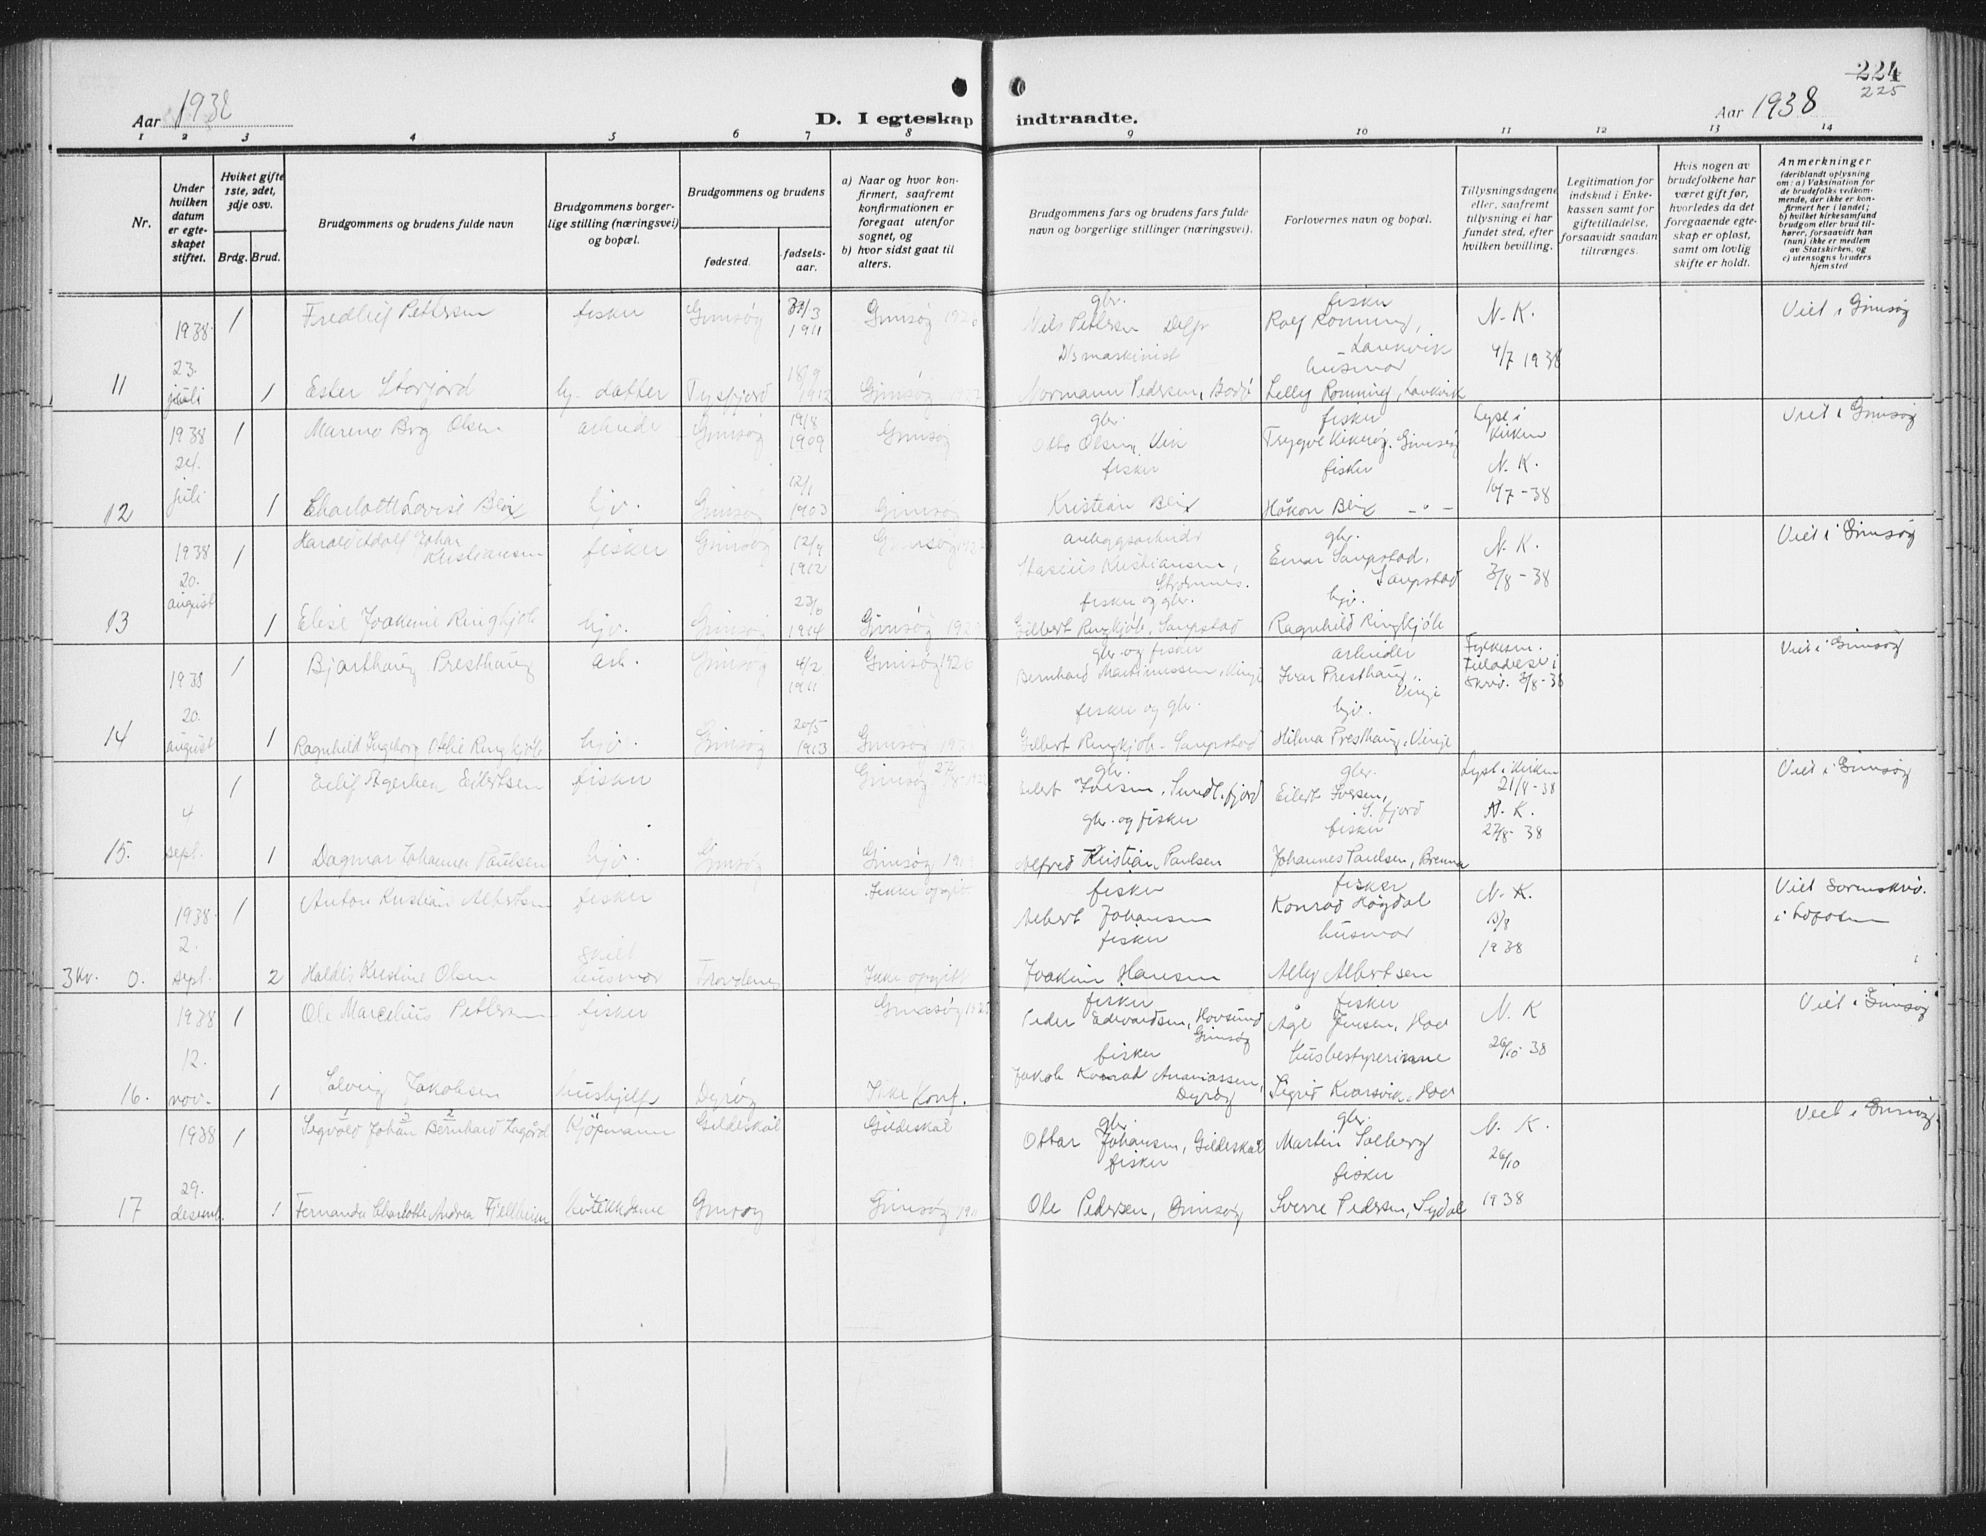 224
225
Aar 1938
D. I egteskap indtraadte.
Aar 1938
1 2 3 4 5 6 7 8 9 10 11 12 13 14
Nr.
Under hvilken datum er egteskapet stiftet.
Hviket gifte 1ste, 2det, 3dje osv.
Brdg. Brud.
Brudgommens og brudens fulde navn
Brudgommens borgerlige stilling (næringsvei) og bopæl.
Brudgommens og brudens
fødested.
fødselsaar.
a) Naar og hvor konfirmert, saafremt konfirmationen er foregaat utenfor sognet, og
b) hvor sidst gaat til alters.
Brudgommens fars og brudens fars fulde navn og borgerlige stillinger (næringsvei).
Forlovernes navn og bopæl.
Tillysningsdagene eller, saafremt tillysning ei har fundet sted, efter hvilken bevilling.
Legitimation for indskud i Enkekassen samt for giftetilladelse, forsaavidt saadan tiltrænges.
Hvis nogen av brudefolkene har været gift før, hvorledes da det foregaaende egteskap er opløst, samt om lovlig skifte er holdt.
Anmerkninger (deriblandt oplysning om: a) Vaksination for de brudefolks vedkommende, der ikke er konfirmert her i landet; b) hvilket kirkesamfund brudgom eller brud tilhører, forsaavidt han (hun) ikke er medlem av Statskirken, og c) utensogns bruders hjemsted
11 1938 23. juli 1 Fredlief Pettersen fisker Gimsøy 31/3 1911 Gimsøy gbr. Nils Pettersen fisker Rolf Rønning, Laukvik N. K. 4/7 1938 Viet i Gimsøy
1 Ester Storjord hj. datter Tysfjord 18/9 1912 Gimsøy D/s maskinist Normann Pedersen, Bodø husmor Lelly Rønning, Laukvik
12 1938 24. juli 1 Mareno Olsen arbeider Gimsøy 19/8 1909 Gimsøy gbr. Otto Olsen, Vik fisker Trygve Gimsøy Lyst i kirken N. K. 10/7-38 Viet i Gimsøy
1 Charlotte Lovise Blix hjv. Gimsøy 12/1 1903 Gimsøy fisker Kristian Blix fisker Håkon Blix -"-
13 1938 20. august 1 Harald Adolf Johan Kristiansen fisker Gimsøy 12/9 1912 Gimsøy anleggsarbeider Stasius Kristiansen, Strømnes. gbr. Einar Saupstad, Saupstad N. K. 3/8-38 Viet i Gimsøy
1 Elise Joakime Ringkjøb hjv. Gimsøy 23/6 1914 Gimsøy fisker og gbr. Gilbert Ringkjøb, Saupstad hjv. Ragnhild Ringkjøb
14 1938 20. august 1 Bjarthaug Presthaug arb. Gimsøy 4/2 1911 Gimsøy 1926 gbr. og fisker Bernhard Martinussen, Vinje arbeider Ivar Presthaug, Vinje Fylkesm. tiladelse i skriv. 3/8-38 Viet i Gimsøy
1 Ragnhild Ingeborg Otelie Ringkjøb hjv. Gimsøy 20/5 1913 Gimsøy fisker og gbr. Gilbert Ringkjøb, Saupstad hjv. Hilma Presthaug, Vinje
15. 4 sept. 1 Eilif Agerhen Eilertsen fisker Gimsøy gbr. Eilert Iversen, Sundl.fjord gbr. Eilert Iversen, S. fjord Lyst i kirken 21/8-38 N. K. 27/8-38 Viet i Gimsøy
1 Dagmar Johanna Paulsen hjv. Gimsøy Gimsøy 1919 gbr. og fisker Alfred Kristian Paulsen fisker Johannes Paulsen, Brenna
3 kv. 0. 1938 2. sept. 1 Anton Kristian Albertsen fisker Ikke opgit fisker Albert Johansen fisker Konrad Høgdal N. K. 13/8 1938 Viet Sorenskriv. i Lofoten
2 Haldis Kristine Olsen skilt husmor Ikke opgitt fisker Joakim Hansen husmor Ally Albertsen
16. 1938 12. nov. 1 Ole Marcelius Pettersen fisker Gimsøy fisker Peder Edvardsen, Hovsund Gimsøy fisker Åge Jensen, Hov N. K 26/10-38 Viet i Gimsøy
1 Solveig Jakobsen hushjelp Dyrøy Ikke Konf. fisker Jakob Konrad Ananiassen, Dyrøy husbestyrerinne Sigrid Kvarsvik, Hov
17 1938 29. desemb. 1 Sigvald Johan Bernhard Lagård 1 3 2 Kjøpmann Gildeskål Gildeskål gbr. Ottar Johansen, Gildeskål gbr. Martin Solberg N. K. 26/10 1938 Viet i Gimsøy
1 Fernanda Charlotte Andrea Fjellheim Gimsøy Gimsøy fisker Ole Pedersen, Gimsøy fisker Sverre Pedersen, Sydal